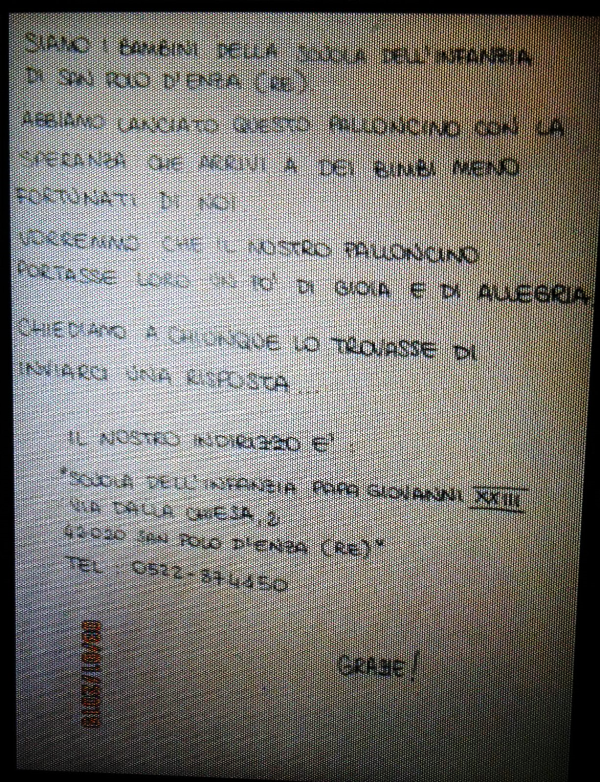 SIAMO I BAMBINI DELLA SCUOLA DELL'INFANZIA
DI SAN POLO D'ENZA (RE).
ABBIAMO LANCIATO QUESTO PALLONCINO CON LA
SPERANZA CHE ARRIVI A DEI BIMBI MENO
FORTUNATI DI NOI
VORREMMO CHE IL NOSTRO PALLONCINO
PORTASSE LORO UN PO' DI GIOIA E DI ALLEGRIA.
CHIEDIAMO A CHIUNQUE LO TROVASSE DI
INVIARCI UNA RISPOSTA...
IL NOSTRO INDIRIZZO E' :
"SCUOLA DELL'INFANZIA PAPA GIOVANNI XXIII
VIA DALLA CHIESA, 2
42020 SAN POLO D'ENZA (RE)"
TEL : 0522-874450
GRAZIE!